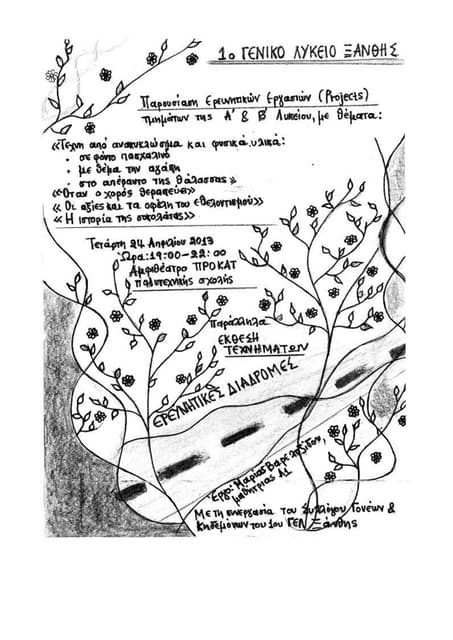 1ο ΓΕΝΙΚΟ ΛΥΚΕΙΟ ΞΑΝΘΗΣ
Παρουσίαση Ερευνητικών Εργασιών (Projects)
τμημάτων της Α' & Β' Λυκείου, με θέματα:
«Τέχνη από ανακυκλώσιμα και φυσικά υλικά:
• σε φόντο πασχαλινό
• με θέμα την αγάπη
• στο απέραντο της θάλασσας»
«Όταν ο χορός θεραπεύει»
«Οι αξίες και τα οφέλη του εθελοντισμού»
«Η ιστορία της σοκολάτας»
Τετάρτη 24 Απριλίου 2013
Ώρα: 19:00-22:00
Αμφιθέατρο ΠΡΟΚΑΤ
πολυτεχνικής σχολής
Παράλληλα
ΕΚΘΕΣΗ
ΤΕΧΝΗΜΑΤΩΝ
ΕΡΕΥΝΗΤΙΚΕΣ ΔΙΑΔΡΟΜΕΣ
Έργο: Μαρίας
μαθήτριας Α1
Με τη συνεργασία του Συλλόγου Γονέων &
Κηδεμόνων του 1ου ΓΕΛ Ξάνθης